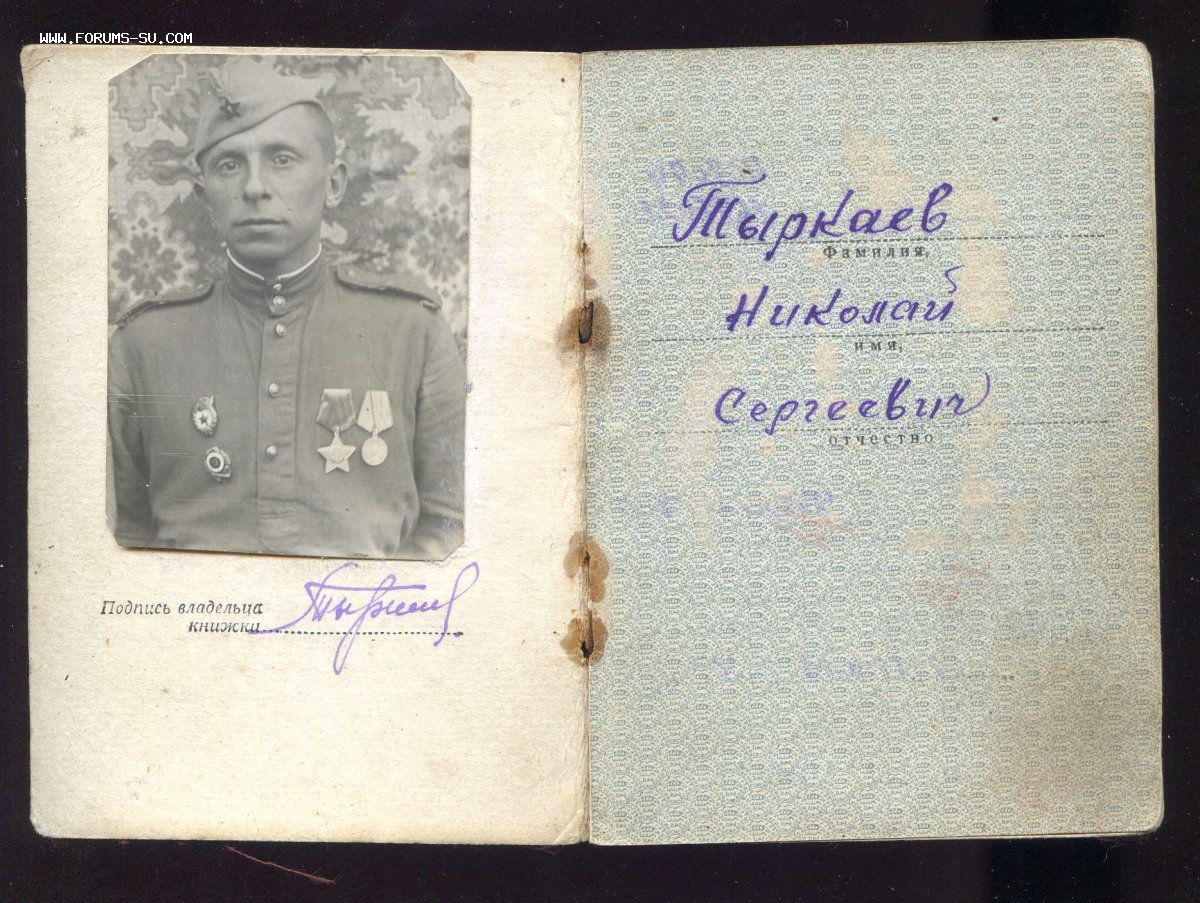 WWW.FORUMS-SU.COM
Подпись владельца
книжки
Тыркаев
Фамилия,
Николай
имя,
Сергеевич
отчество